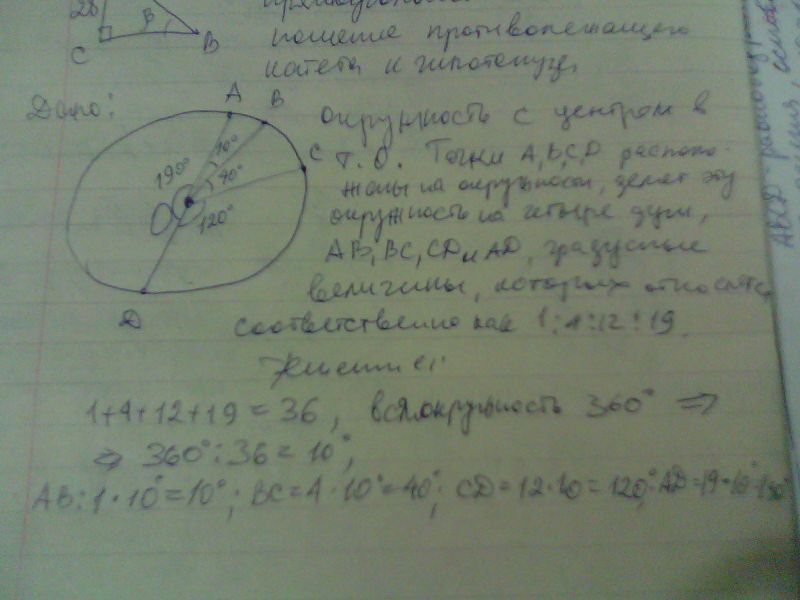 28
C
β
B
пошение противолежащего
катета к гипотенузе,
Дано:
A
B
C
D
O
10°
40°
190°
120°
окружность с центром в
т. О. Точки A, B, C, D располо-
жены на окружности, делят эту
окружность на четыре дуги,
AB, BC, CD и AD, градусные
величины, которых относятся
соответственно как 1:4:12:19.
Решение:
1+4+12+19=36, вся окружность 360° ⇒
⇒ 360°:36=10°,
AB: 1·10°=10°; BC=4·10°=40°; CD=12·10=120°; AD=19·10°=190°
ABCD